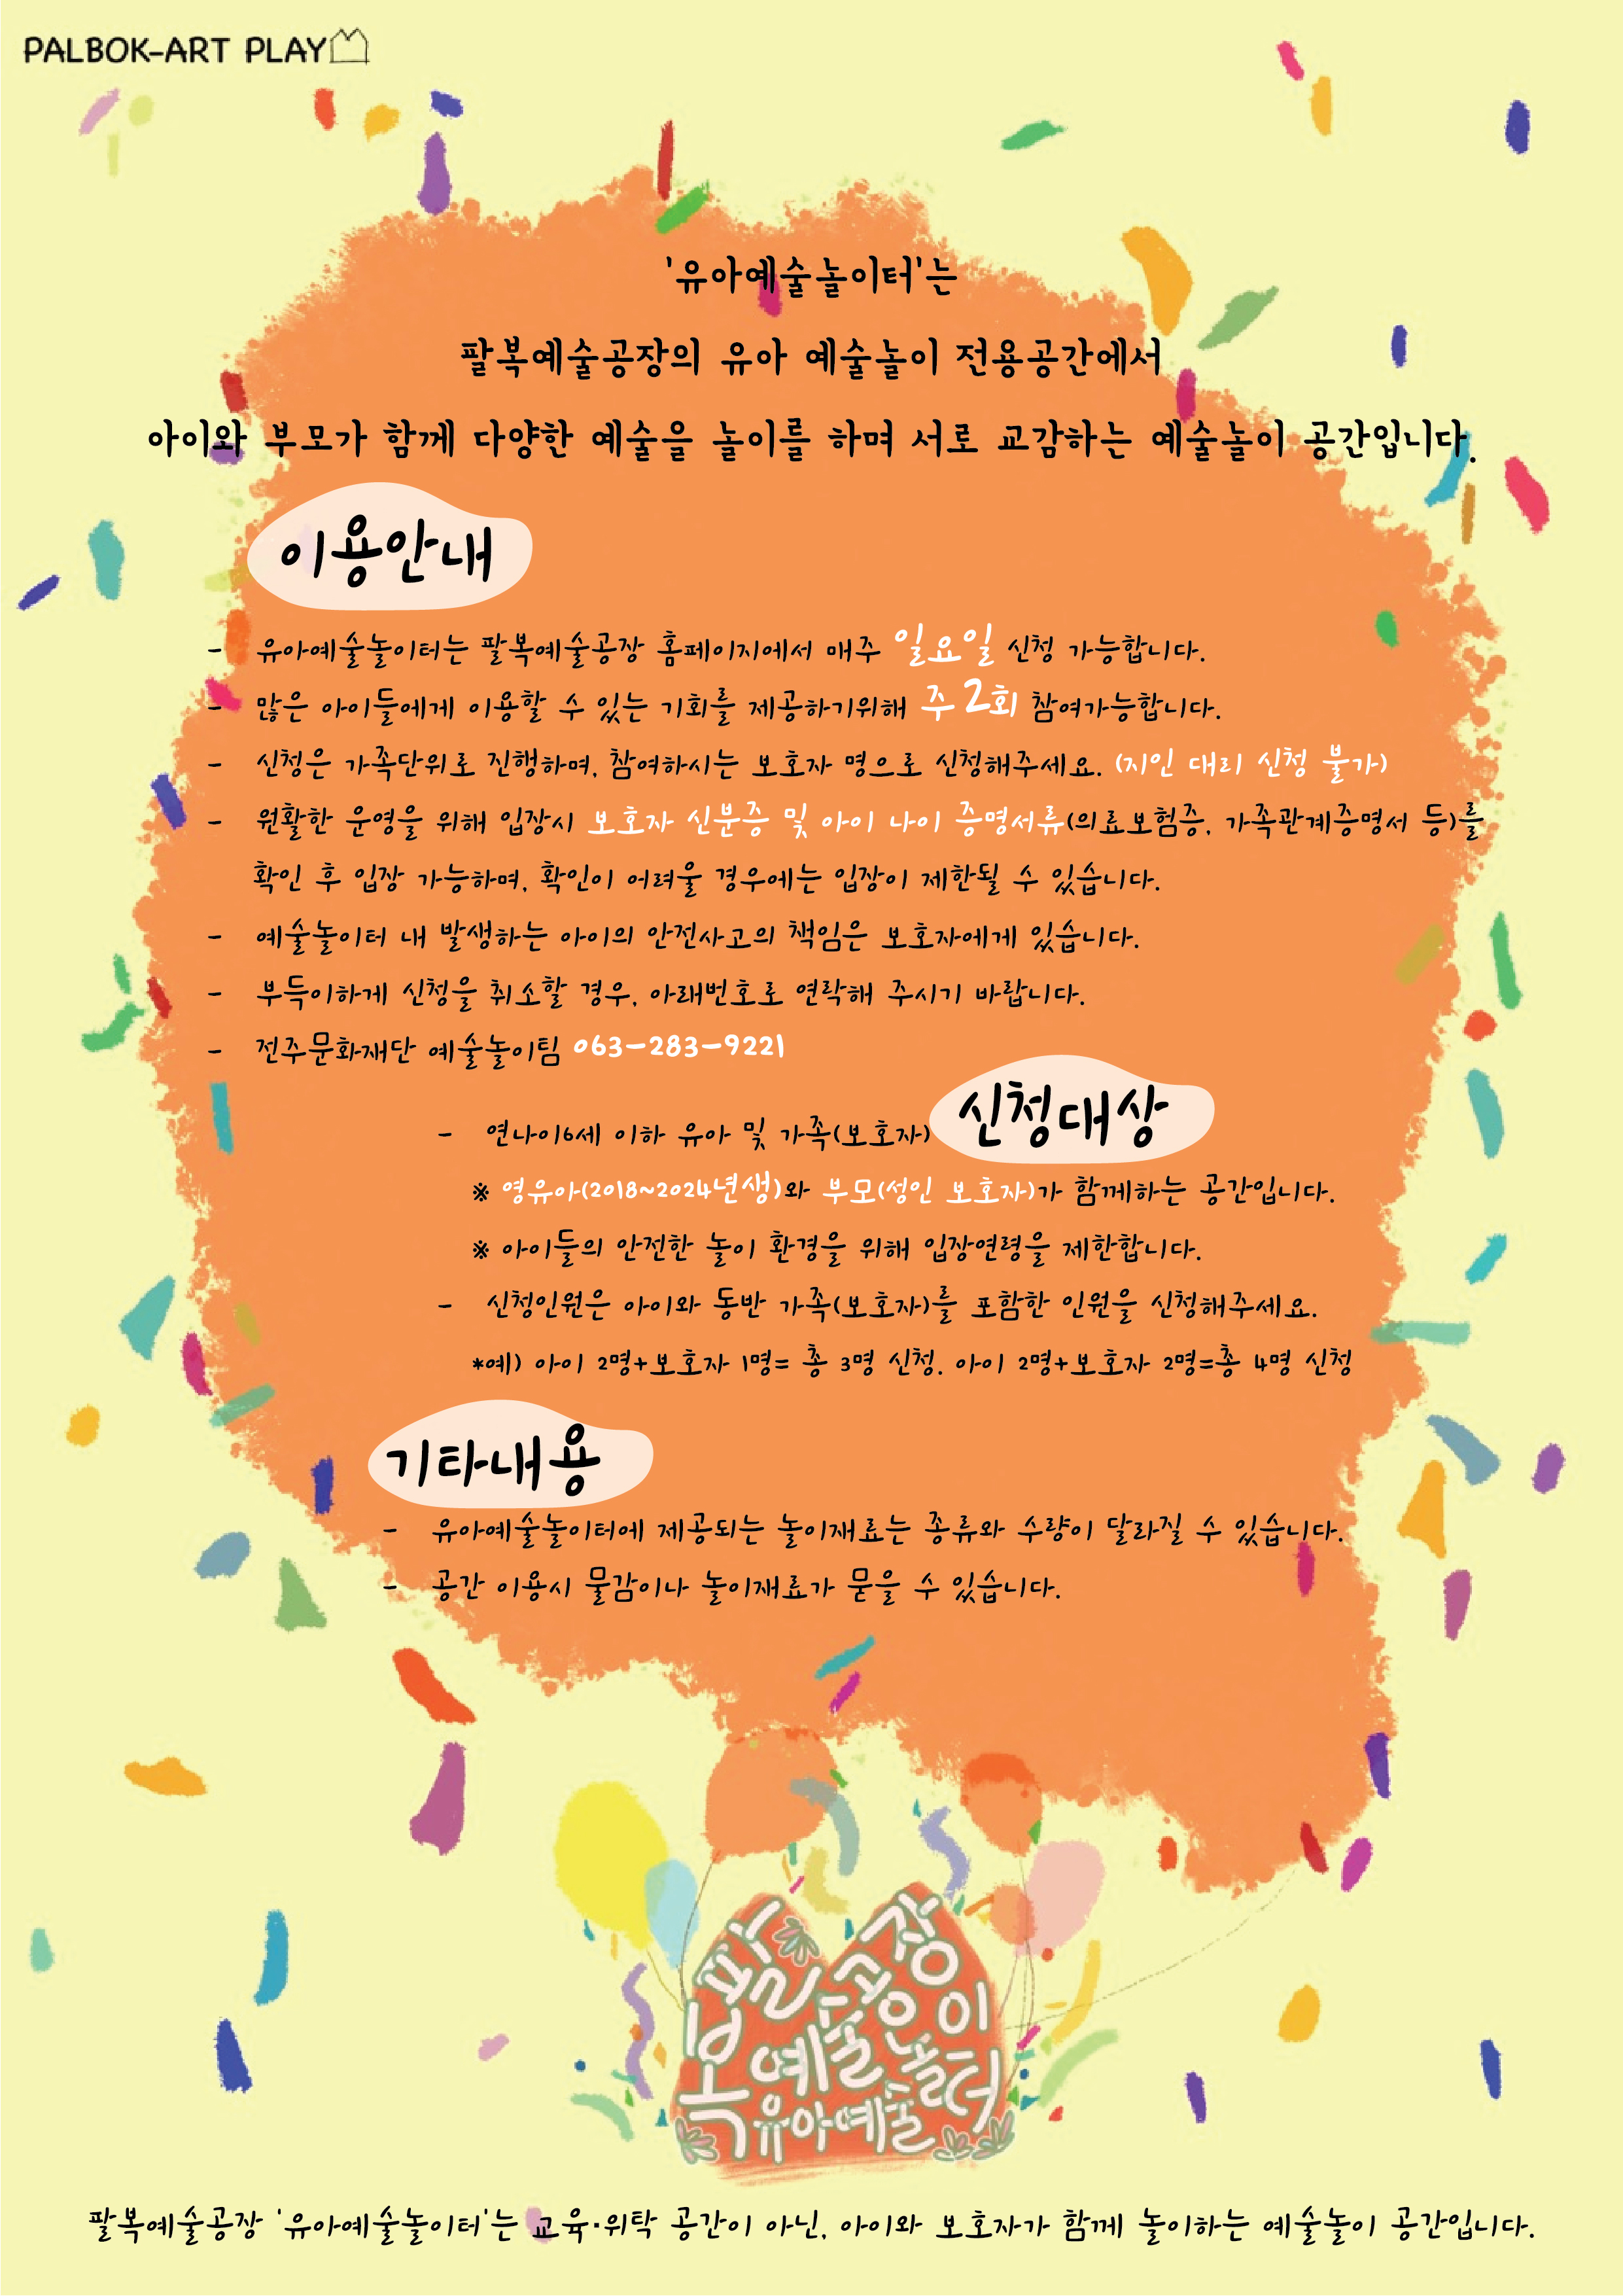 PALBOK-ART PLAY
'유아예술놀이터'는
팔복예술공장의 유아 예술놀이 전용공간에서
아이와 부모가 함께 다양한 예술을 놀이를 하며 서로 교감하는 예술놀이 공간입니다.
이용안내
- 유아예술놀이터는 팔복예술공장 홈페이지에서 매주 일요일 신청 가능합니다.
- 많은 아이들에게 이용할 수 있는 기회를 제공하기위해 주 2회 참여가능합니다.
- 신청은 가족단위로 진행하며, 참여하시는 보호자 명으로 신청해주세요. (지인 대리 신청 불가)
- 원활한 운영을 위해 입장시 보호자 신분증 및 아이 나이 증명서류(의료보험증, 가족관계증명서 등)를
확인 후 입장 가능하며, 확인이 어려울 경우에는 입장이 제한될 수 있습니다.
- 예술놀이터 내 발생하는 아이의 안전사고의 책임은 보호자에게 있습니다.
- 부득이하게 신청을 취소할 경우, 아래번호로 연락해 주시기 바랍니다.
- 전주문화재단 예술놀이팀 063-283-9221
신청대상
- 연나이6세 이하 유아 및 가족(보호자)
※ 영유아(2018~2024년생)와 부모(성인 보호자)가 함께하는 공간입니다.
※ 아이들의 안전한 놀이 환경을 위해 입장연령을 제한합니다.
- 신청인원은 아이와 동반 가족(보호자)를 포함한 인원을 신청해주세요.
*예) 아이 2명+보호자 1명= 총 3명 신청. 아이 2명+보호자 2명=총 4명 신청
기타내용
- 유아예술놀이터에 제공되는 놀이재료는 종류와 수량이 달라질 수 있습니다.
- 공간 이용시 물감이나 놀이재료가 묻을 수 있습니다.
팔복예술공장
유아예술놀이터
팔복예술공장 '유아예술놀이터'는 교육·위탁 공간이 아닌, 아이와 보호자가 함께 놀이하는 예술놀이 공간입니다.